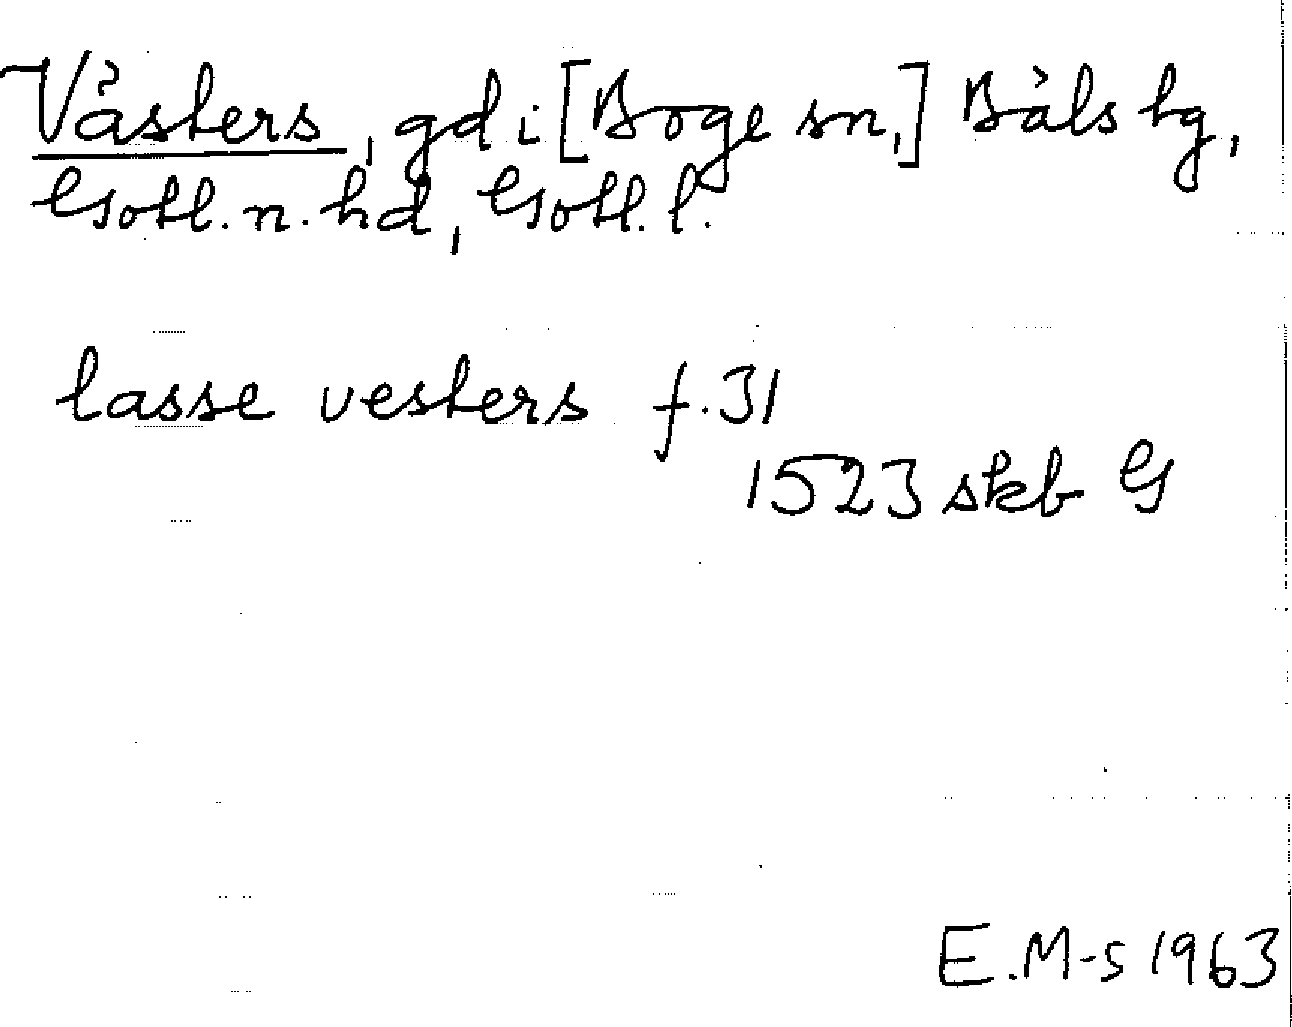 Västers, gd i [Boge sn,] Bäls tg,
Gotl. n. hd, Gotl. l.
lasse vesters f. 31
1523 skb G
E.M-s 1963